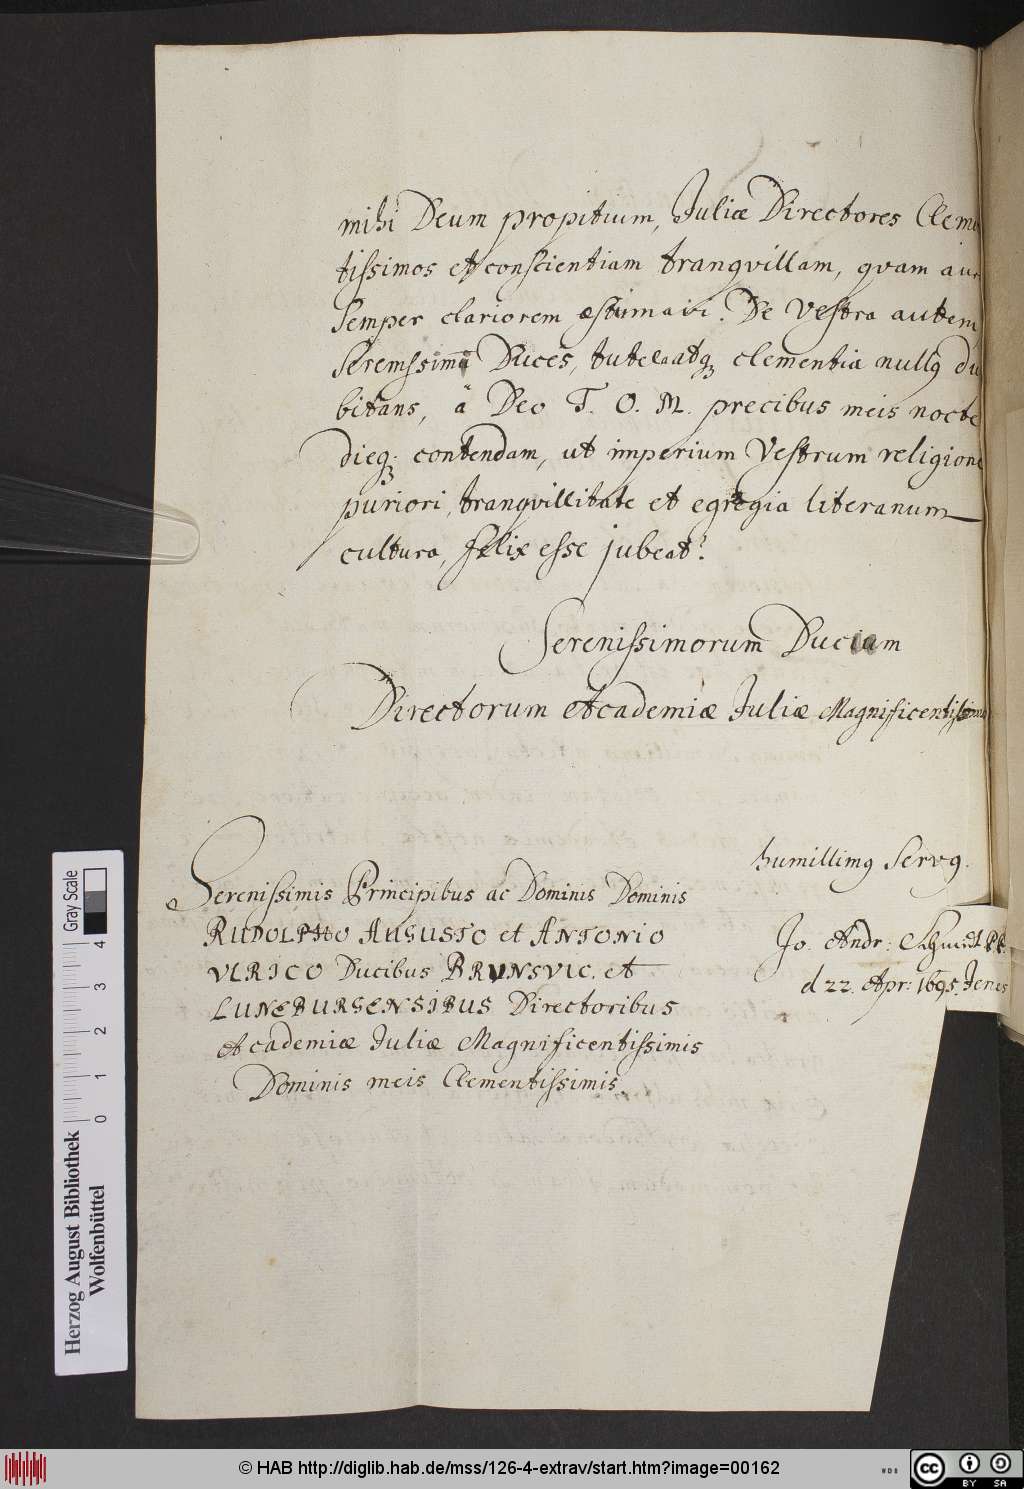 mihi Deum propitium, Juliæ Directores Cleme
tissimos et conscientiam tranqvillam, qvam aur
semper clariorem æstimavi. De Vestra autem
Serenissimi Duces, tutela atq; clementia nullq du
bitans, â Deo T. O. M. precibus meis nocte
dieq; contendam, ut imperium Vestrum religione
puriori, tranqvillitate et egregia literarum
cultura, felix esse jubeat.
Serenissimorum Ducum
Directorum Academiæ Juliæ Magnificentissimo
humillimq Servq.
Jo. Andr: Schmidt
d 22. Apr: 1695. Jenæ
Serenissimis Principibus ac Dominis Dominis
RUDOLPHO AUGUSTO et ANTONIO
VLRICO Ducibus BRUNSVIC. et
LUNEBURGENSIBUS Directoribus
Academiæ Juliæ Magnificentissimis
Dominis meis Clementissimis.
Gray Scale
4 3 2 1 0
Herzog August Bibliothek
Wolfenbüttel
© HAB http://diglib.hab.de/mss/126-4-extrav/start.htm?image=00162
WDB
cc BY SA